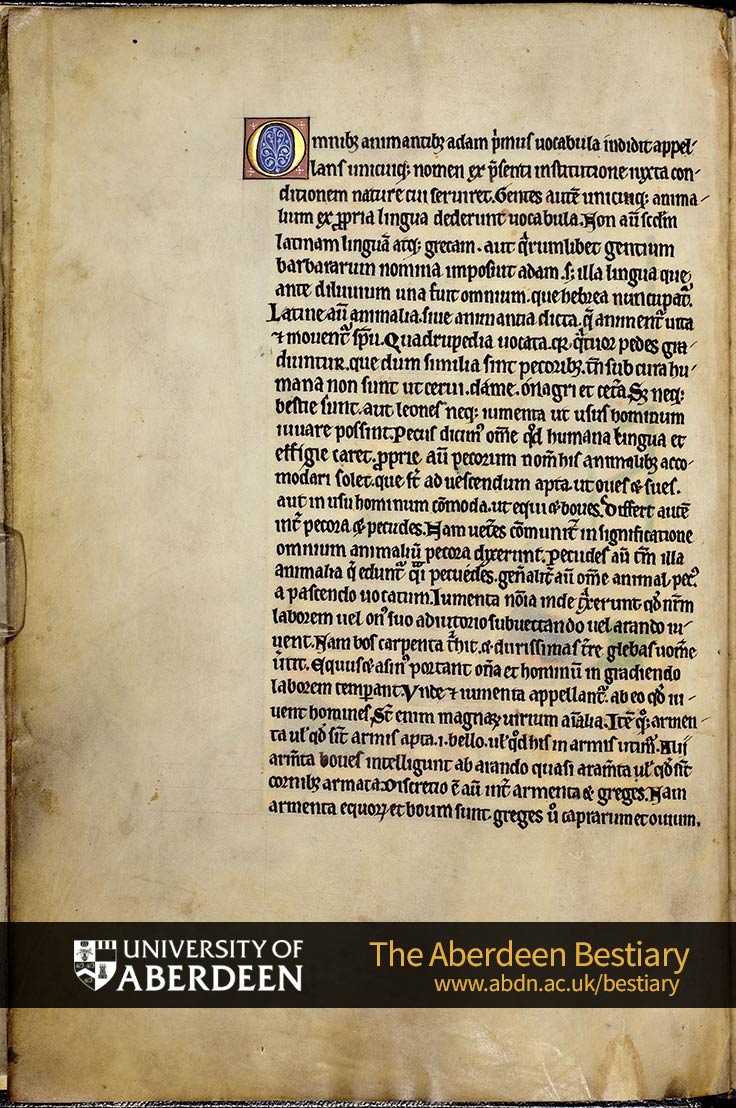 Omnibꝫ animantibꝫ adam p̾mus uocabula indidit appel-
lans unicuiqꝫ nomen ex p̾senti institutione iuxta con-
ditionem nature cui seruiret. Gentes autē unicuiqꝫ anima-
lium ex ꝓpria lingua dederunt uocabula. Non aū scd̄m
latinam linguā atqꝫ grecam. aut q̾rumlibet gentium
barbararum nomina imposuit adam. s; illa lingua que
ante diluuium una fuit omnium. que hebrea nuncupat᷑.
Latine aū animalia. siue animantia dicta. q̄ animent᷑ uita
⁊ mouent᷑ sp̄u. Quadrupedia uocata. q̾tuor pedes gra-
diuntur. que dum similia sint pecoribꝫ. tn̄ sub cura hu-
mana non sunt ut cerui. dame. onagri et cet̄a. Sꝫ neqꝫ
bestie sunt. aut leones neqꝫ iumenta ut usus hominum
iuuare possint. Pecus dicim᷒ om̄e qd̄ humana lingua et
effigie caret. ꝓprie aū pecorum nom̄ his animalibꝫ acco-
modari solet. que st̄ ad uescendum apta. ut oues & sues.
aut in usu hominum cōmoda. ut equi & boues. Differt autē
int̄ pecora & pecudes. Nam uet̄es cōmunit̄ in significatione
omnium animaliū pecora dixerunt. Pecudes aū tm̄ illa
animalia q̄ edunt᷑ q̄si pecuedes. gen̄alit̄ aū om̄e animal pec᷒
a pascendo uocatum. Iumenta nōia inde t̾xerunt qd̄ nr̄m
laborem uel on᷒ suo adiutorio subuectando uel arando iu-
uent. Nam bos carpenta t̾hit. & durissimas t̄re glebas uom̄e
ūtit. Equus & asin᷒ portant on̄a et hominū in gradiendo
laborem temp̄ant. Vnde ⁊ iumenta appellant᷑. ab eo qd̄ iu-
uent homines. St̄ enim magnaꝝ uirium aīalia. Itē qꝫ armen-
ta ul̄ qd̄ sīt armis apta .i. bello. ul̄ qd̄ his in armis utim᷑. Alij
arm̄ta boues intelligunt ab arando quasi aram̄ta ul̄ qd̄ sīt
cornibꝫ armata. Discretio ē aū int̄ armenta & greges. Nam
armenta equoꝝ et boum sunt. greges ū caprarum et ouium.
UNIVERSITY OF
ABERDEEN
The Aberdeen Bestiary
www.abdn.ac.uk/bestiary